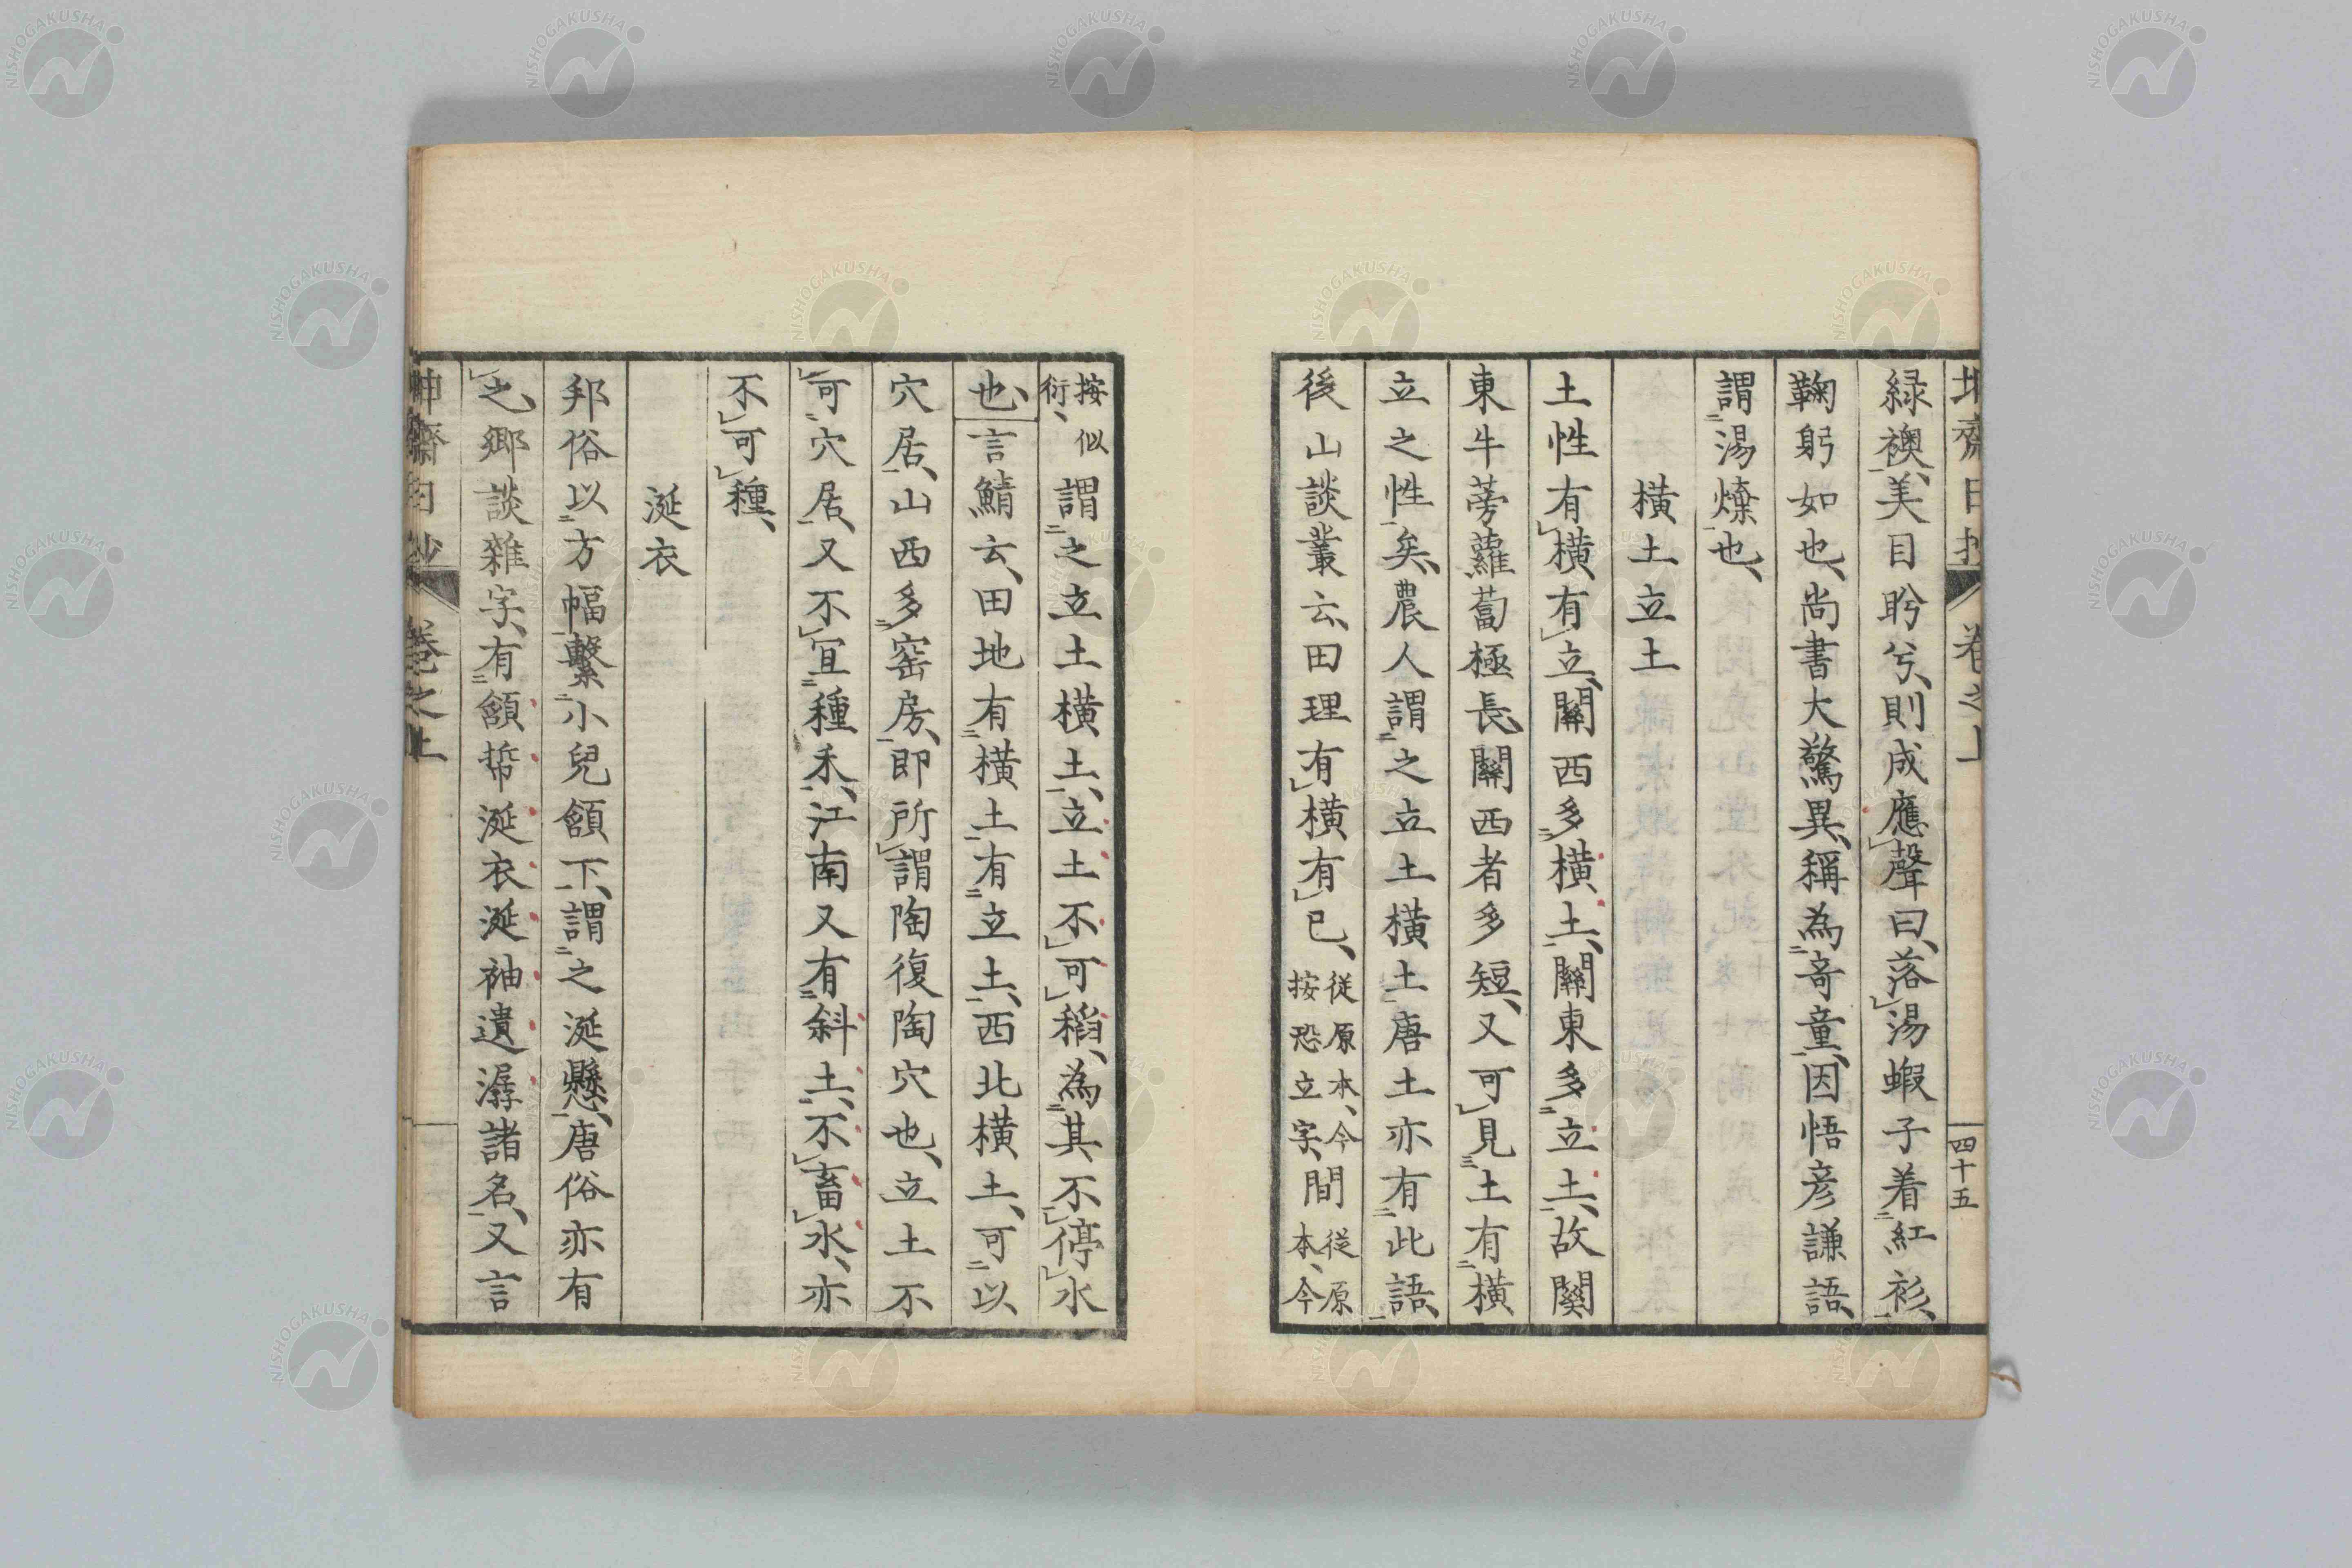 緑襖、美目盻兮、則成應聲曰、落湯蝦子着紅衫、
鞠躬如也、尚書大驚異、稱為奇童、因悟彦謙語、
謂湯燥也、
橫土立土
土性有橫、有立、關西多橫土、關東多立土、故關
東牛蒡蘿蔔極長、關西者多短、又可見土有橫
立之性矣、農人謂之立土橫土、唐土亦有此語、
後山談叢云、田理有橫有已、從原本、今按恐立字、間從原本、今
按似衍、謂之立土橫土、立土不可稻、為其不停水
也、言鯖云、田地有橫土、有立土、西北橫土、可以
穴居、山西多窰房、即所謂陶復陶穴也、立土不
可穴居、又不宜種禾、江南又有斜土、不畜水、亦
不可種、
涎衣
邦俗以方幅繫小兒頷下、謂之涎懸、唐俗亦有
之、鄉談雜字、有頷㡇涎衣涎袖遺潺諸名、又言
卷之上
四十五
NISHOGAKUSHA